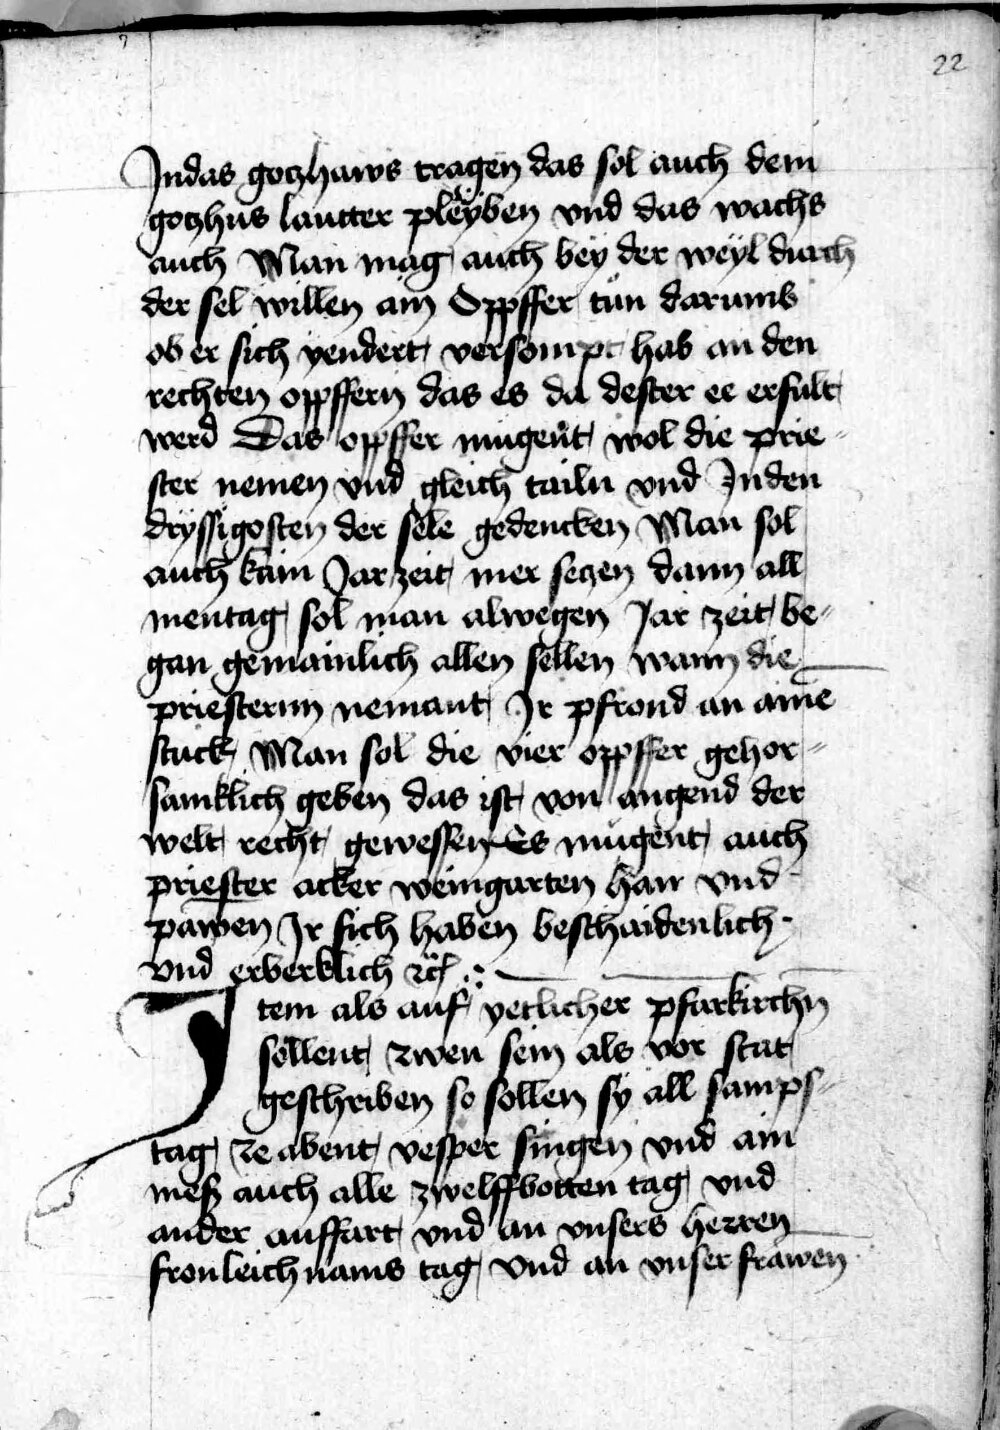 22
Jndas gotzhaws tragen das sol auch dem
gotzhus lautter pleyben vnd das wachs
auch Man mag auch bey der weyl durch
der sel willen ain Oppffer tůn darumb
ob er sich yendert versompt hab an den
rechten oppffern das es da dester ee erfult
werd Das oppffer mugent wol die prie-
ster nemen vnd gleich tailn vnd Jn den
dryssigosten der sele gedencken Man sol
auch kain Jarzeit mer setzen dann all
mentag sol man alwegen Jar zeit be-
gan gemainlich allen sellen wann die
priesternn nemant Jr pfrond an aine
stuck Man sol die vier oppffer gehor-
samklich geben das ist von angend der
welt recht gewessen Es mugent auch
priester acker weingarten han vnd
pawen Jr fich haben beschaidenlich
vnd erberklich ꝛc̃
Jtem als auf yetlicher pfarkirchn
sollent zwen sein als vor stat
geschriben so sollen sy all samps-
tag ze abent vesper singen vnd ain
mess auch alle zwelffbotten tag vnd
ander auffart vnd an vnsers herren
fronleichnams tag vnd an vnser frawen